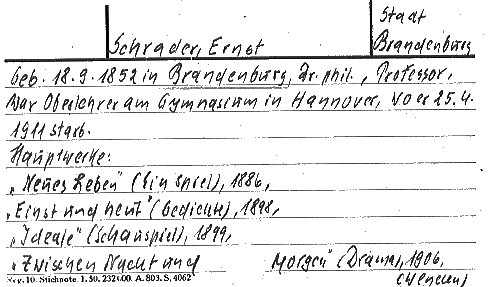 Schrader, Ernst
Staat
Brandenburg
Geb. 18.9.1852 in Brandenburg, Dr. phil., Professor.
War Oberlehrer am Gymnasium in Hannover, wo er 25.4.
1911 starb.
Hauptwerke:
„Neues Leben" (Ein Spiel), 1886,
„Einst und heut" (Gedichte), 1898,
„Ideale" (Schauspiel), 1899,
„Zwischen Nacht und Morgen" (Drama), 1906,
10. Stichnote. 1.50. 2321.00. A. 803. S. 4062